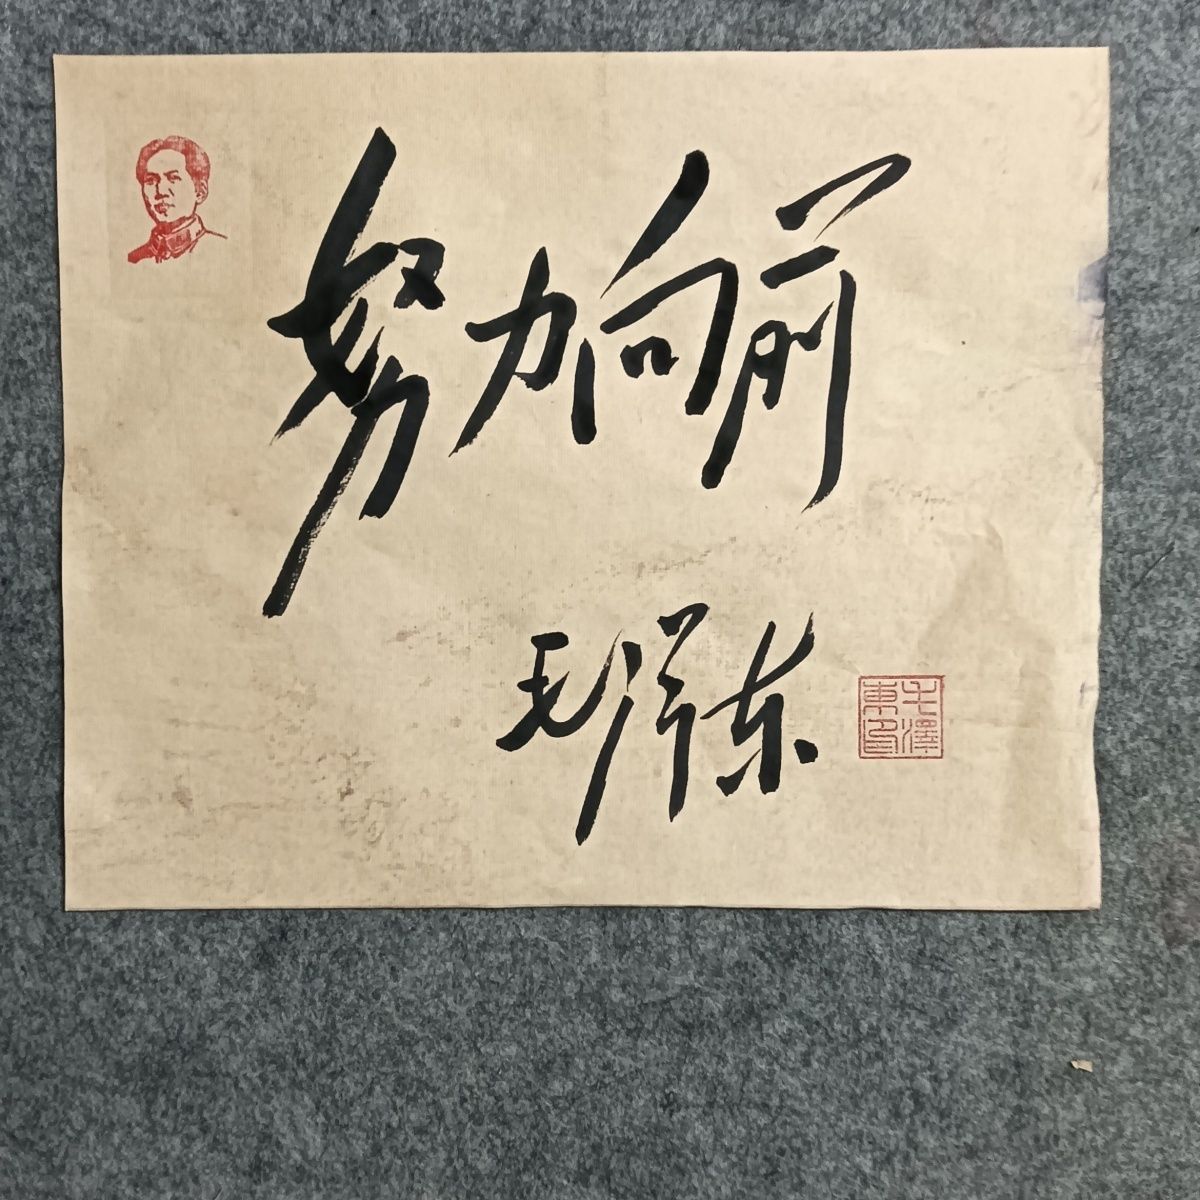 努力向前
毛泽东
毛澤東印